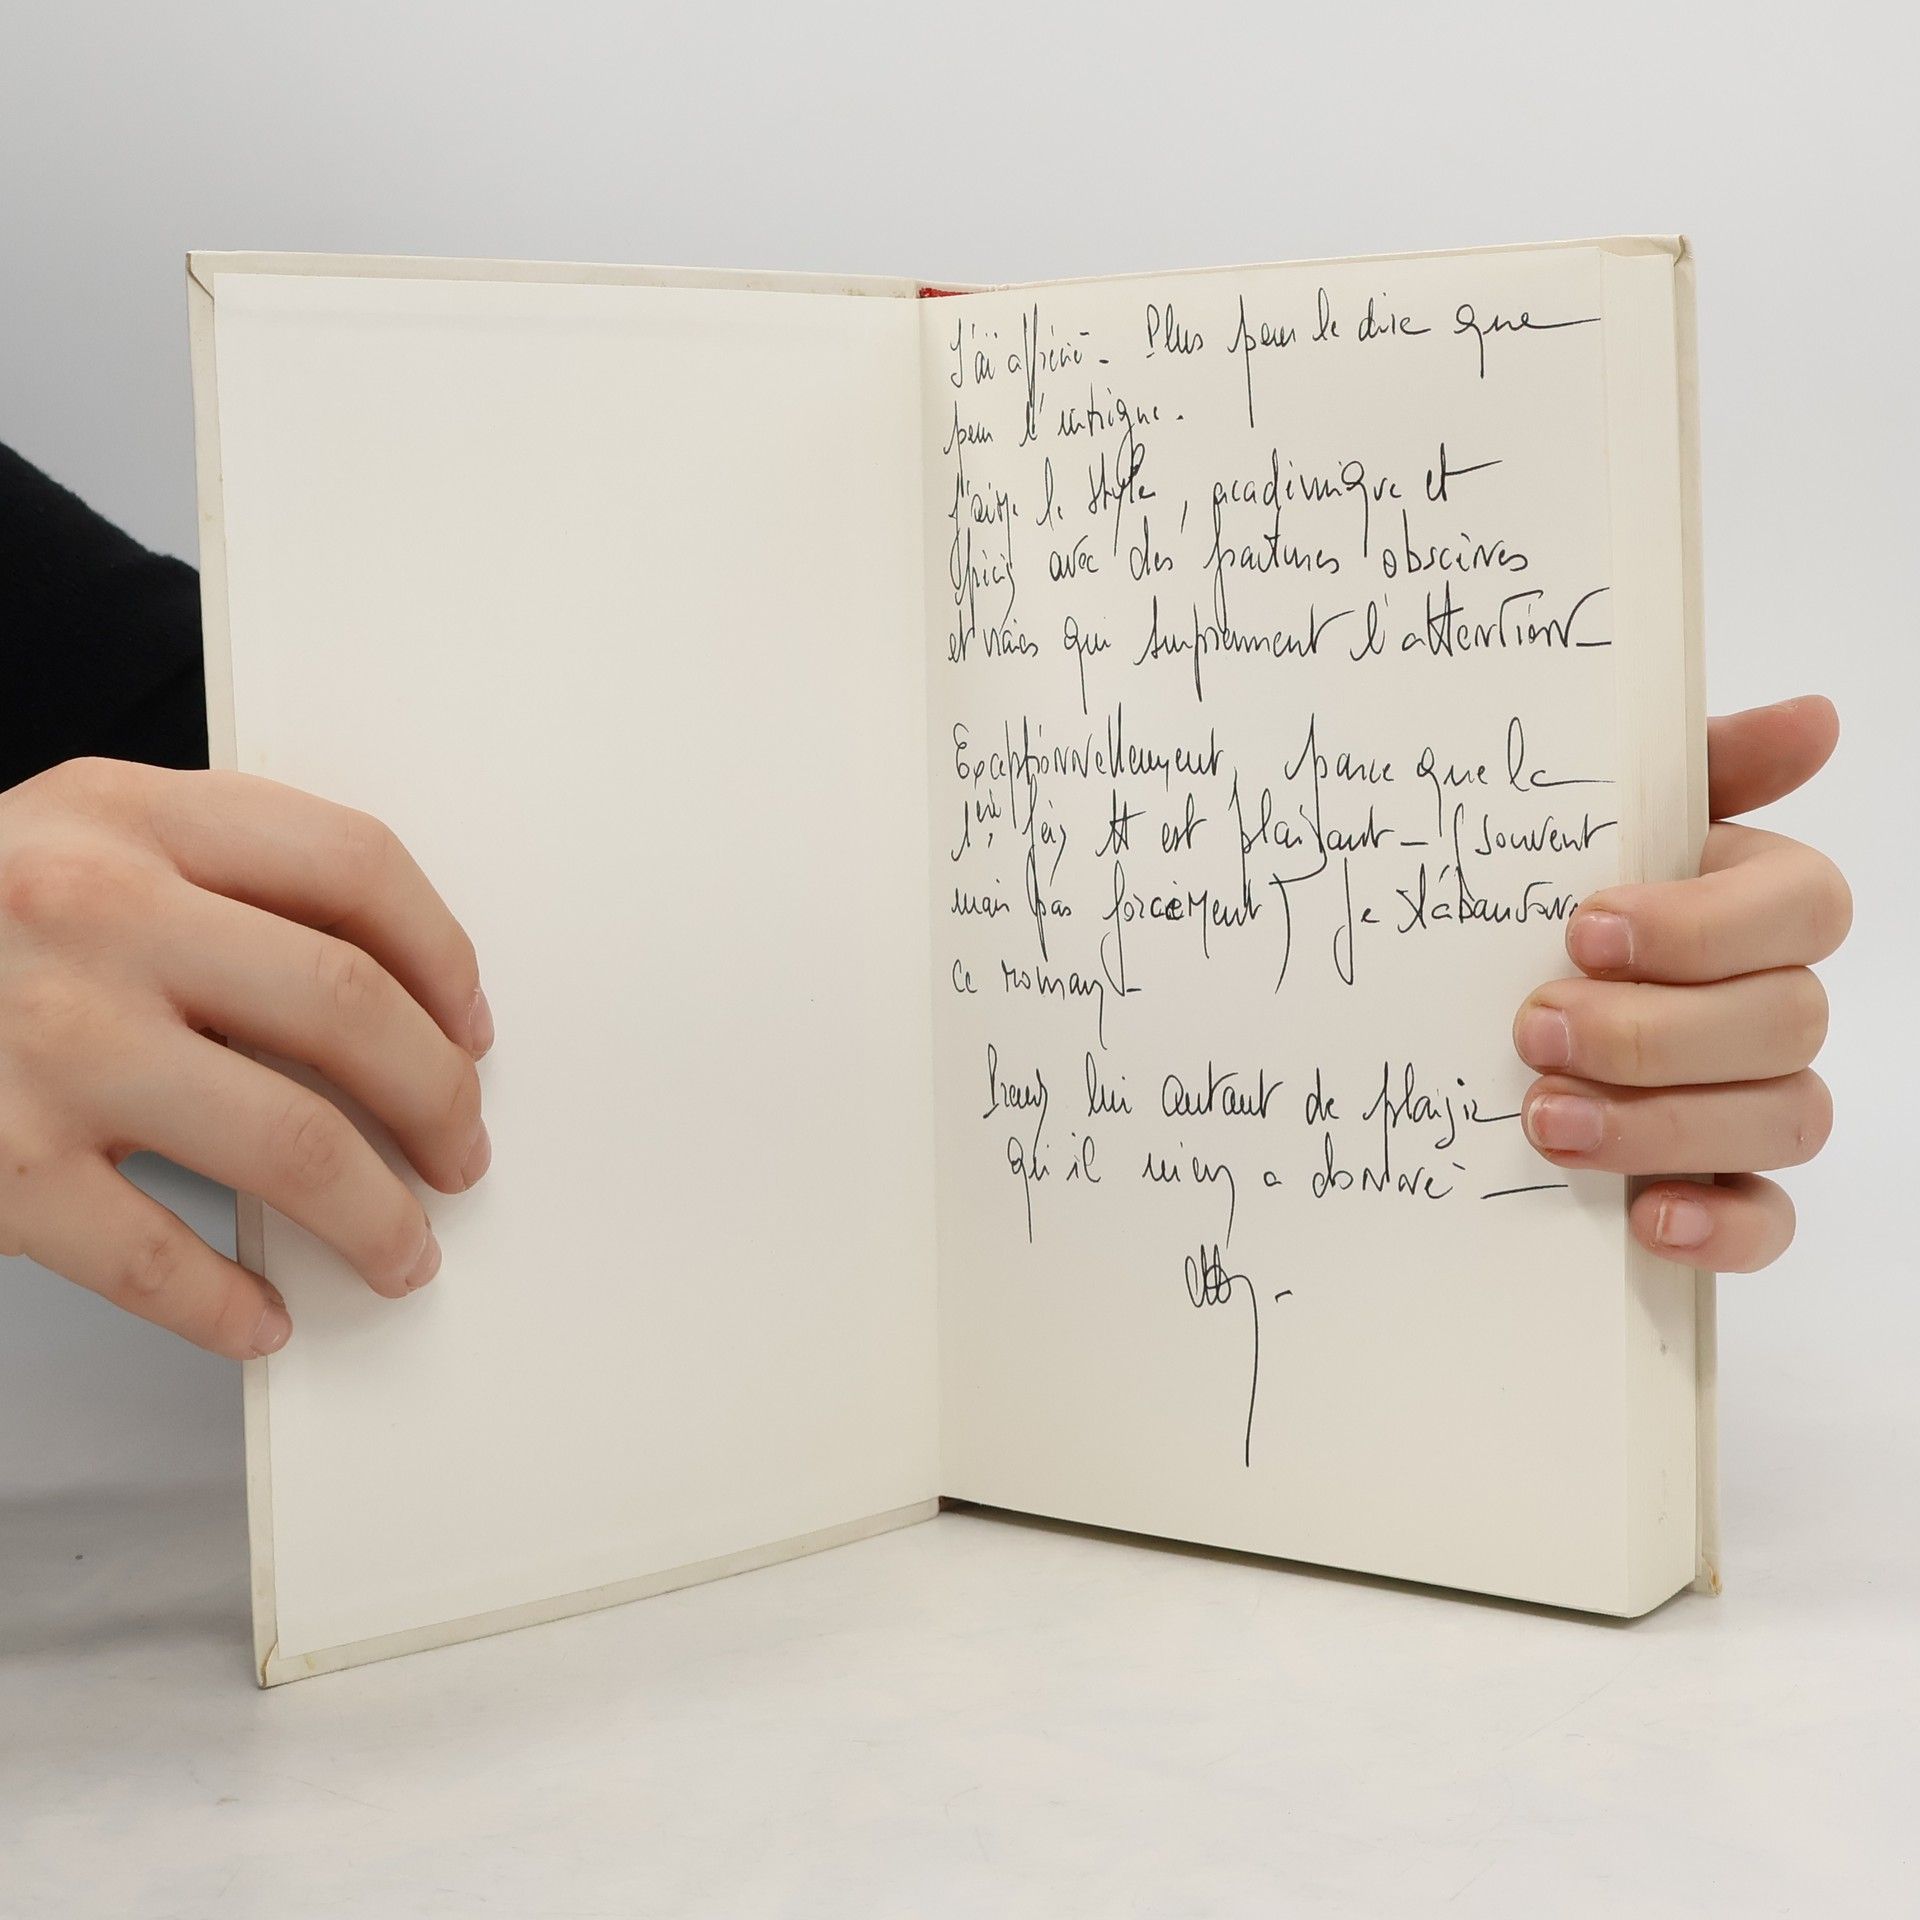 J'ai apprécié - Plus pour le dire que
pour l'intrigue.
J'aime le style, académique et
précis avec des fractures obscènes
et vraies qui surprennent l'attention -
Exceptionnellement, parce que la
1ère fois tt est plaisant - (souvent
mais pas forcément) Je t'abandonne
ce roman -
Prends lui autant de plaisir
qu'il m'en a donné -